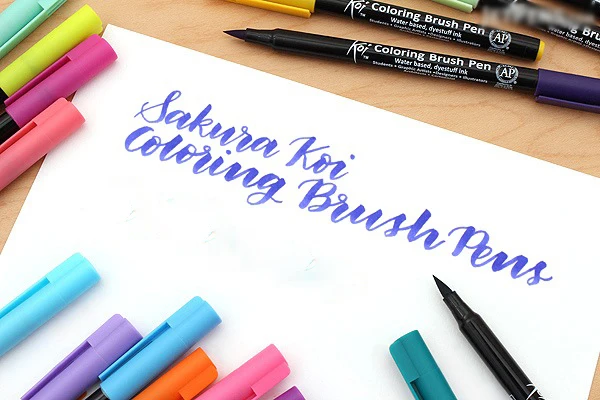 Koi Coloring Brush Pen
Water based, dyestuff ink
Students • Graphic Artists • Designers • Illustrators
AP
Koi Coloring Brush Pen
Water based, dyestuff ink
Students • Graphic Artists • Designers • Illustrators
AP
Sakura Koi
Coloring Brush Pens